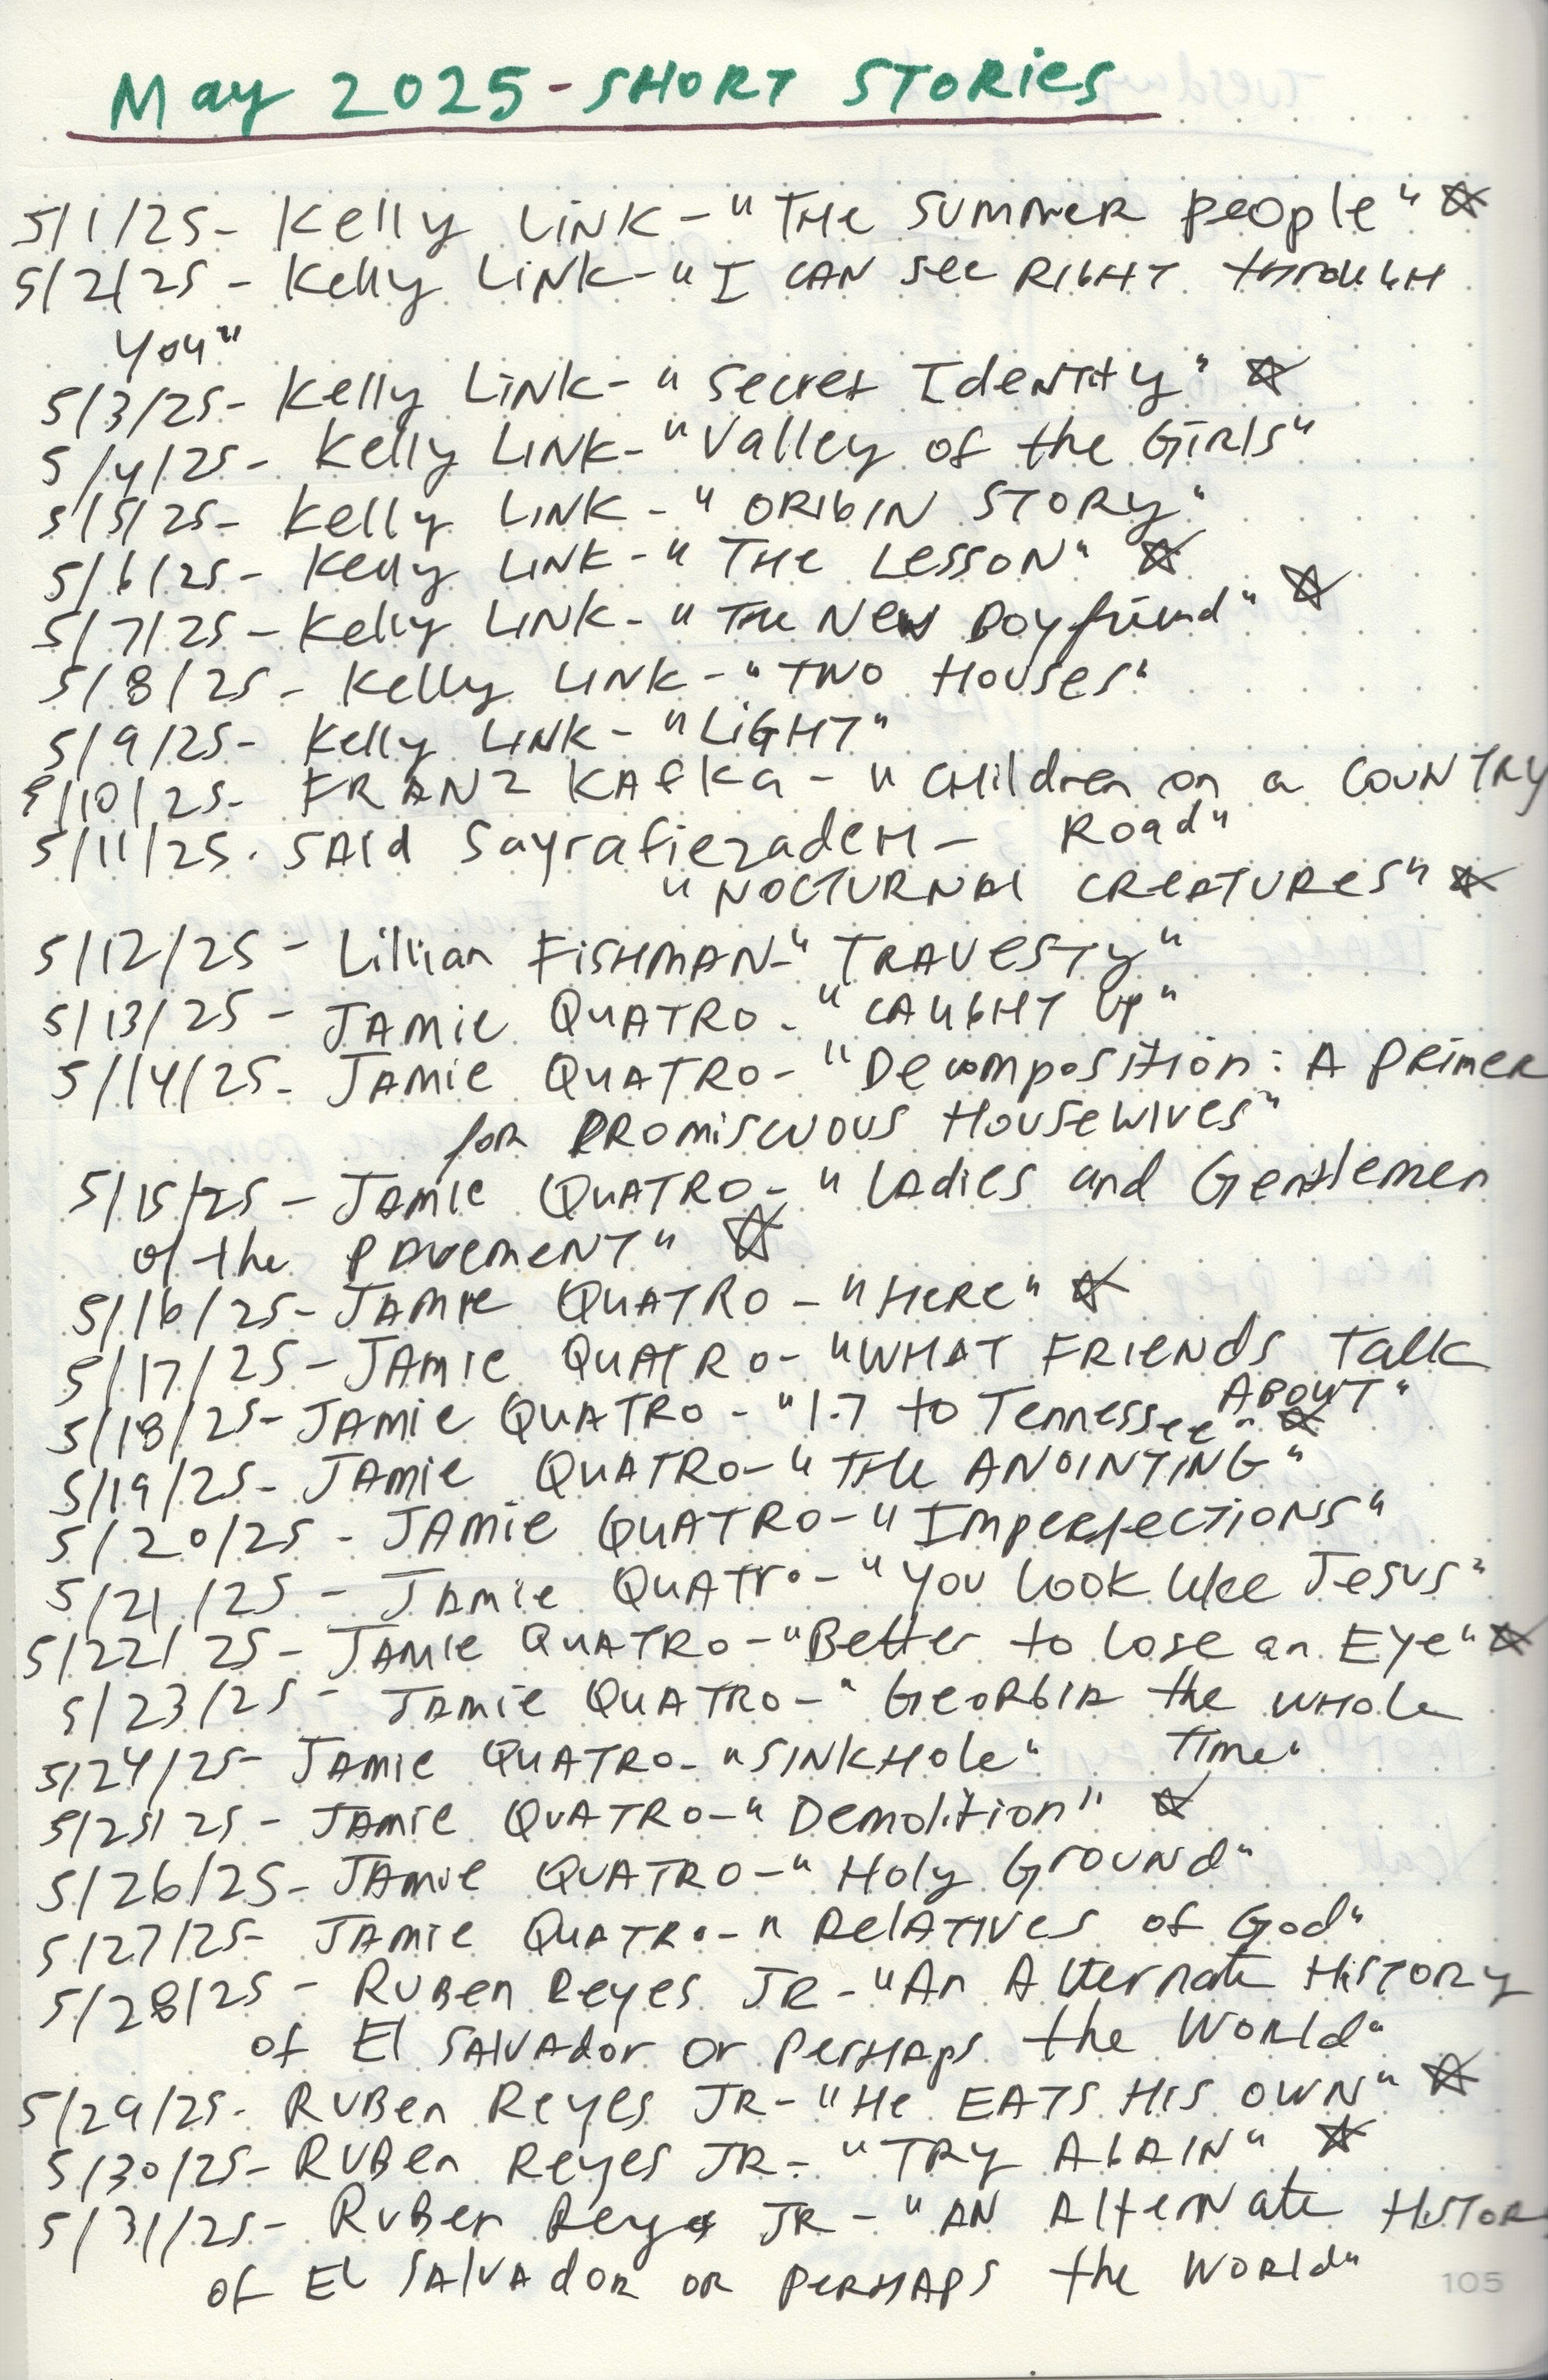 May 2025 - SHORT STORIES
5/1/25 - Kelly LINK - "THE SUMMER people" ☆
5/2/25 - Kelly LINK - "I CAN See RIGHT through
you"
5/3/25 - Kelly LINK - "Secret Identity" ☆
5/4/25 - Kelly LINK - "Valley of the GIRls"
5/5/25 - Kelly LINK - "ORIGIN STORY"
5/6/25 - Kelly LINK - "THE LESSON" ☆
5/7/25 - Kelly LINK - "THE NEW Boyfriend" ☆
5/8/25 - Kelly LINK - "TWO Houses"
5/9/25 - Kelly LINK - "LIGHT"
5/10/25 - FRANZ KAFKa - "CHildren on a COUNTRY
Road"
5/11/25 - SAId Sayrafiezadeh -
"NOCTURNAl CREATURES" ☆
5/12/25 - Lillian FISHMAN - "TRAVESTY"
5/13/25 - JAMIE QUATRO - "CAUGHT UP"
5/14/25 - JAMIE QUATRO - "Decomposition: A PRIMER
for PROMISCUOUS HOUSEWIVES"
5/15/25 - JAMIE QUATRO - "LAdies and Gentlemen
of the PAVEMENT" ☆
5/16/25 - JAMIE QUATRO - "HERE" ☆
5/17/25 - JAMIE QUATRO - "WHAT FRIENDS Talk
ABOUT"
5/18/25 - JAMIE QUATRO - "1.7 to Tennessee" ☆
5/19/25 - JAMIE QUATRO - "THE ANOINTING"
5/20/25 - JAMIE QUATRO - "IMPERfECTIONS"
5/21/25 - JAMIE QUATRO - "You look like Jesus"
5/22/25 - JAMIE QUATRO - "Better to lose an Eye" ☆
5/23/25 - JAMIE QUATRO - "GEORGIA the WHOLE
Time"
5/24/25 - JAMIE QUATRO - "SINKHole"
5/25/25 - JAMIE QUATRO - "Demolition" ☆
5/26/25 - JAMIE QUATRO - "Holy GROUND"
5/27/25 - JAMIE QUATRO - "RelATIVES of God"
5/28/25 - RUBen Reyes JR - "An Alternate HISTORY
of El SAlVAdor or PerHAps the World"
5/29/25 - RUBen Reyes JR - "He EATS HIS OWN" ☆
5/30/25 - RUBen Reyes JR - "TRY AGAIN" ☆
5/31/25 - RUBen Reyes JR - "AN AlterNate HISTOR
of El SAlVAdoR OR PERHAPS the WORld"
105